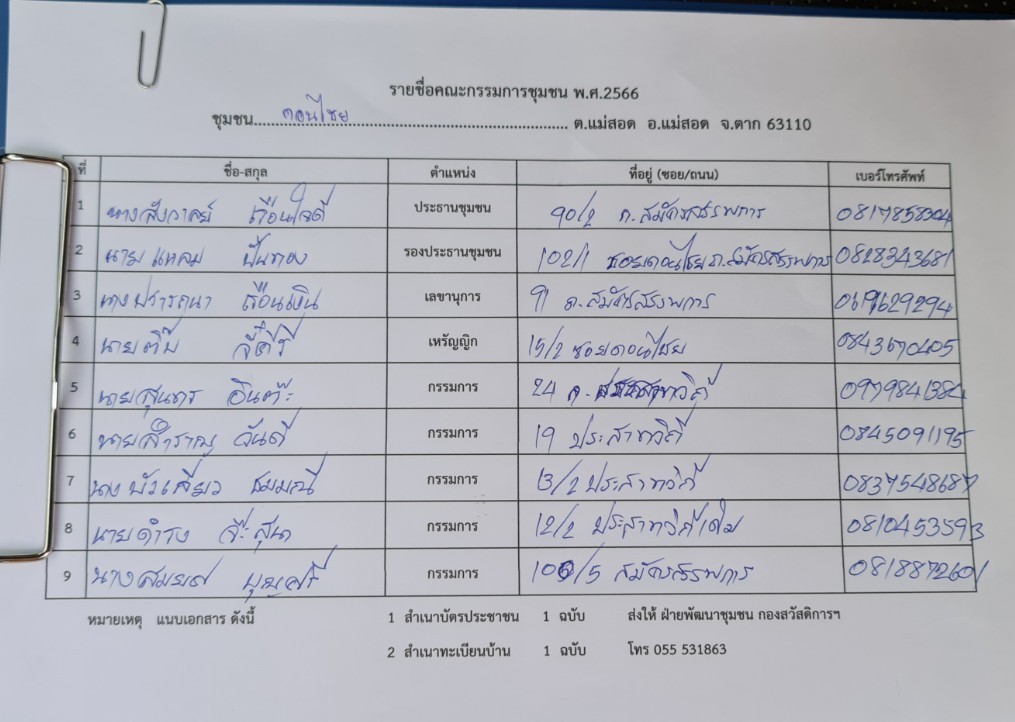 รายชื่อคณะกรรมการชุมชน พ.ศ.2566
ชุมชน ดอนไชย ต.แม่สอด อ.แม่สอด จ.ตาก 63110
ที่ ชื่อ-สกุล ตำแหน่ง ที่อยู่ (ซอย/ถนน) เบอร์โทรศัพท์
1 นางสังวาลย์ เรือนใจดี ประธานชุมชน 90/2 ถ.สมัครสรรพการ
2 นายแหลม ปั้นทอง รองประธานชุมชน 102/1 ซอยดอนไชย ถ.สมัครสรรพการ 0828343681
3 นางปรารถนา เรือนเงิน เลขานุการ 91 ถ.สมัครสรรพการ 0619629294
4 นายต๊ิบ เหรัญญิก 15/2 ซอยดอนไชย 0843670405
5 นายสุนทร อินต๊ะ กรรมการ 24 0979841384
6 นายสำราญ จันดี กรรมการ 19 ประสาทวิถี 0845091195
7 นางบัวเสียว ชมมณี กรรมการ 13/2 ประสาทวิถี 0837548687
8 นายดำรง กรรมการ 12/2 ประสาทวิถีเดิม 0810453593
9 นางสมยศ บุญศรี กรรมการ 100/5 สมัครสรรพการ 0818872601
หมายเหตุ แนบเอกสาร ดังนี้ 1 สำเนาบัตรประชาชน 1 ฉบับ ส่งให้ ฝ่ายพัฒนาชุมชน กองสวัสดิการฯ
2 สำเนาทะเบียนบ้าน 1 ฉบับ โทร 055 531863